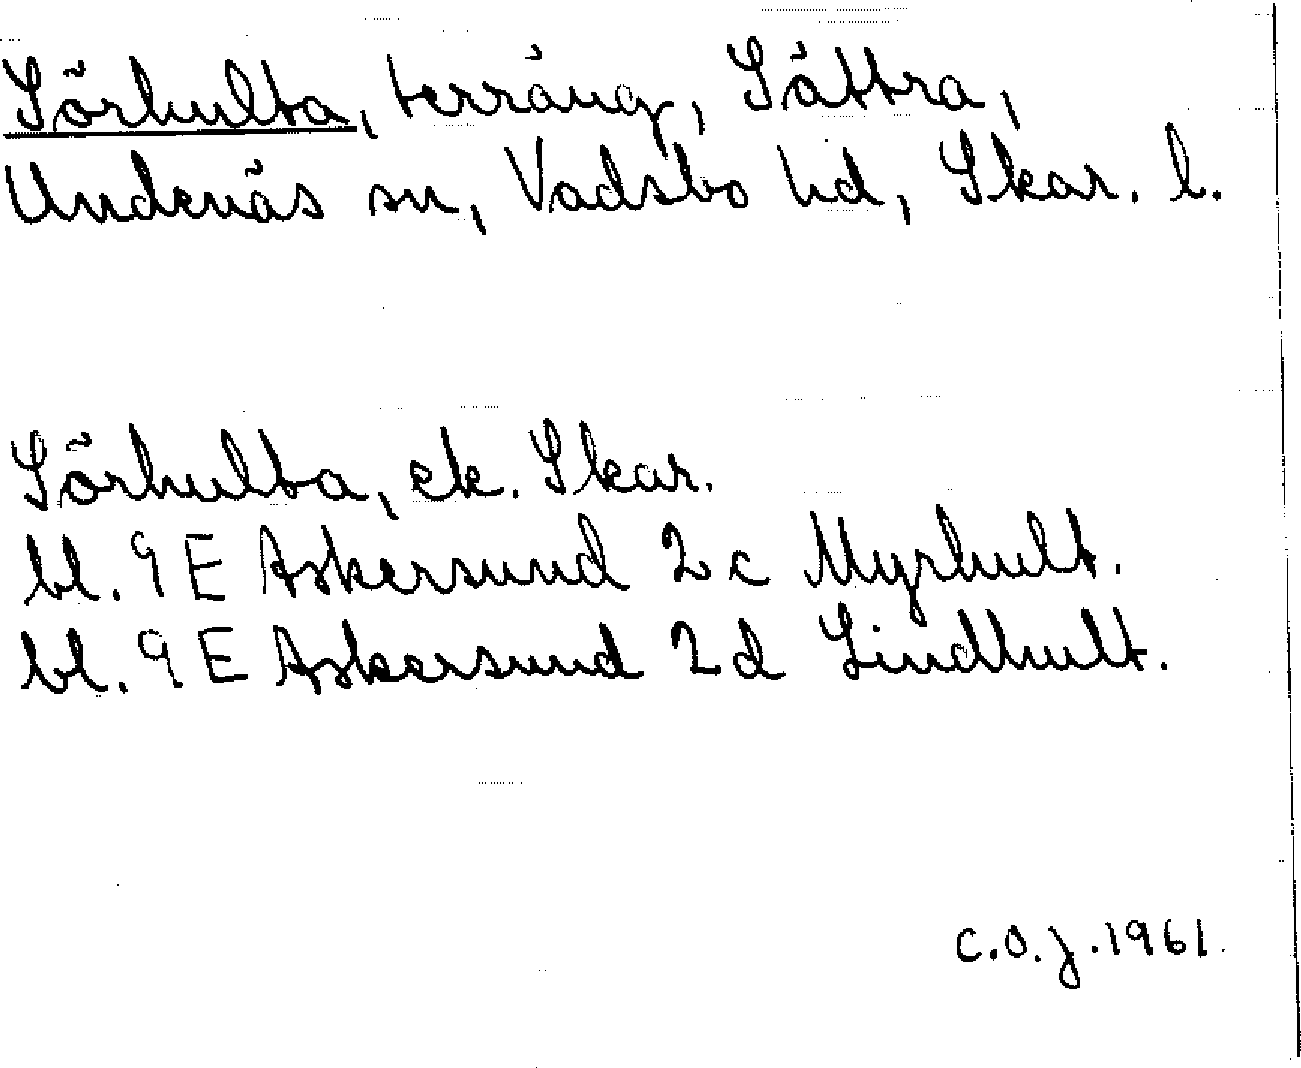 Sörhulta, terräng, Sättra,
Undenäs sn, Vadsbo hd, Skar. l.
Sörhulta, ek. Skar.
bl. 9 E Askersund 2 c Myrhult.
bl. 9 E Askersund 2 d Lindhult.
C.O.J. 1961.